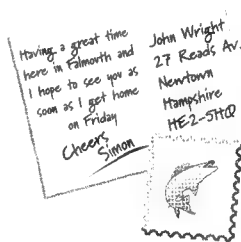 Having a great time
here in Falmorth and
I hope to see you as
soon as I get home
on Friday
Cheers
Simon
John Wright
27 Reads Av.
Newtown
Hampshire
HE2-5HQ